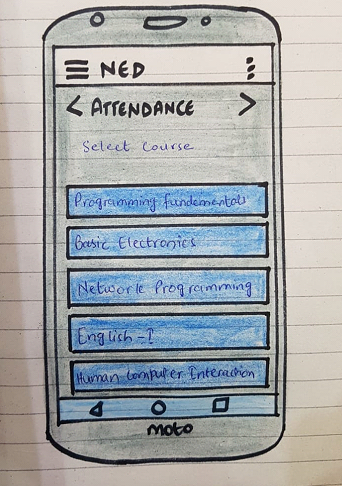 NED
< ATTENDANCE >
Select Course
Programming fundementals
Basic Electronics
Network Programming
English - I
Human Computer Interaction
moto